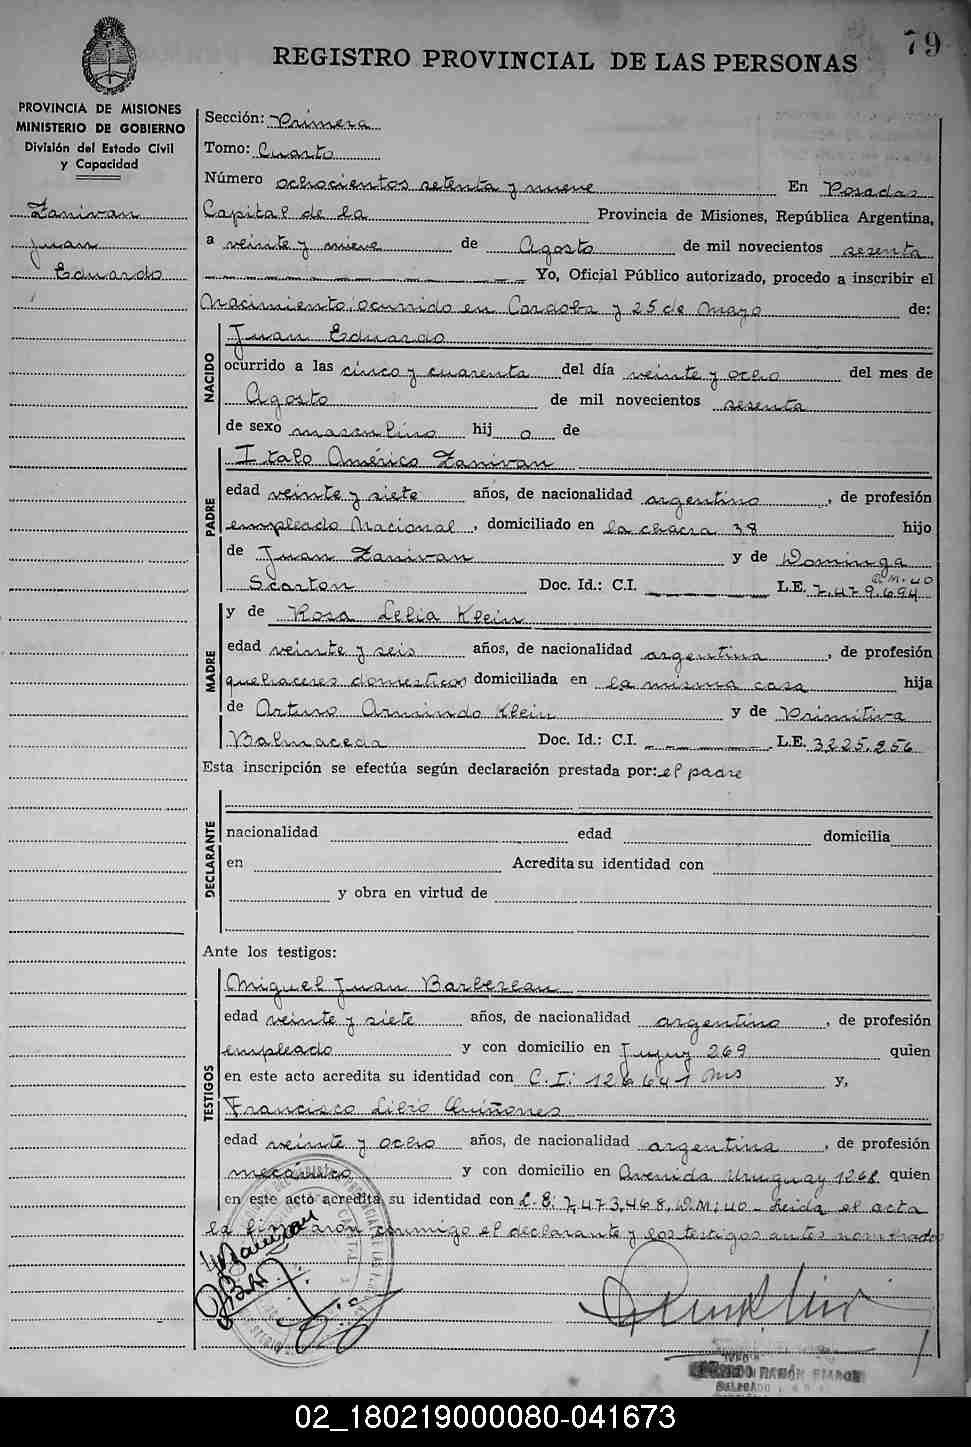 79
REGISTRO PROVINCIAL DE LAS PERSONAS
PROVINCIA DE MISIONES
MINISTERIO DE GOBIERNO
División del Estado Civil
y Capacidad
Zanivan
Juan
Eduardo
Sección: Primera
Tomo: Cuarto
Número ochocientos setenta y nueve En Posadas
Capital de la Provincia de Misiones, República Argentina,
a veinte y nueve de Agosto de mil novecientos sesenta
Yo, Oficial Público autorizado, procedo a inscribir el
Nacimiento, ocurrido en Cordoba y 25 de Mayo de:
NACIDO
Juan Eduardo
ocurrido a las cinco y cuarenta del día veinte y ocho del mes de
Agosto de mil novecientos sesenta
de sexo masculino hij o de
PADRE
Italo Américo Zanivan
edad veinte y siete años, de nacionalidad argentino, de profesión
empleado Nacional, domiciliado en la chacra 38 hijo
de Juan Zanivan y de Dominga
Scarton Doc. Id.: C.I. L.E. 7.479.694 D.M. 40
y de Rosa Lelia Klein
MADRE
edad veinte y seis años, de nacionalidad argentina, de profesión
quehaceres domesticos domiciliada en la misma casa hija
de Arturo Armindo Klein y de Primitiva
Balmaceda Doc. Id.: C.I. L.E. 3225.256
Esta inscripción se efectúa según declaración prestada por: el padre
DECLARANTE
nacionalidad edad domicilia
en Acredita su identidad con
y obra en virtud de
Ante los testigos:
TESTIGOS
Miguel Juan Barbereau
edad veinte y siete años, de nacionalidad argentino, de profesión
empleado y con domicilio en Jujuy 269 quien
en este acto acredita su identidad con C.I: 126641 Mns y,
Francisco Libio Quiñones
edad veinte y ocho años, de nacionalidad argentina, de profesión
mecánico y con domicilio en Avenida Uruguay 1268 quien
en este acto acredita su identidad con L.E: 7,473,468, D.M: 40 - Leida el acta
la firmaron conmigo el declarante y los testigos antes nombrados
RAMÓN
DELEGADO
02_180219000080-041673